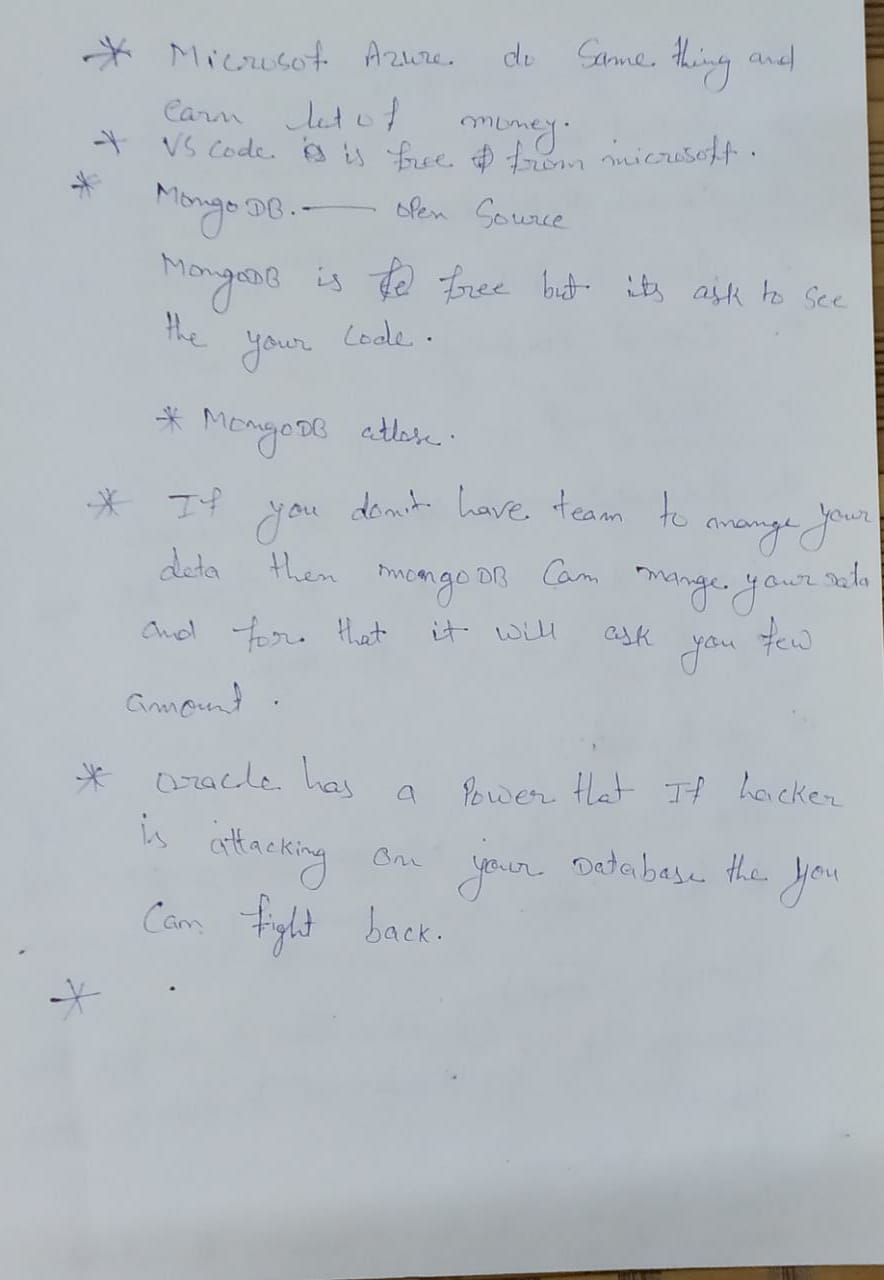 * Microsot Azure do Same thing and
earn lot of money.
* VS Code is is free from microsoft.
* MongoDB. — open Source
MongoDB is free but its ask to see
the your code.
* MongoDB atlase.
* If you don't have team to mange your
data then mongoDB Can mange your data
and for that it will ask you few
amount.
* oracle has a Power that If hacker
is attacking on your Database the you
Can fight back.
* .